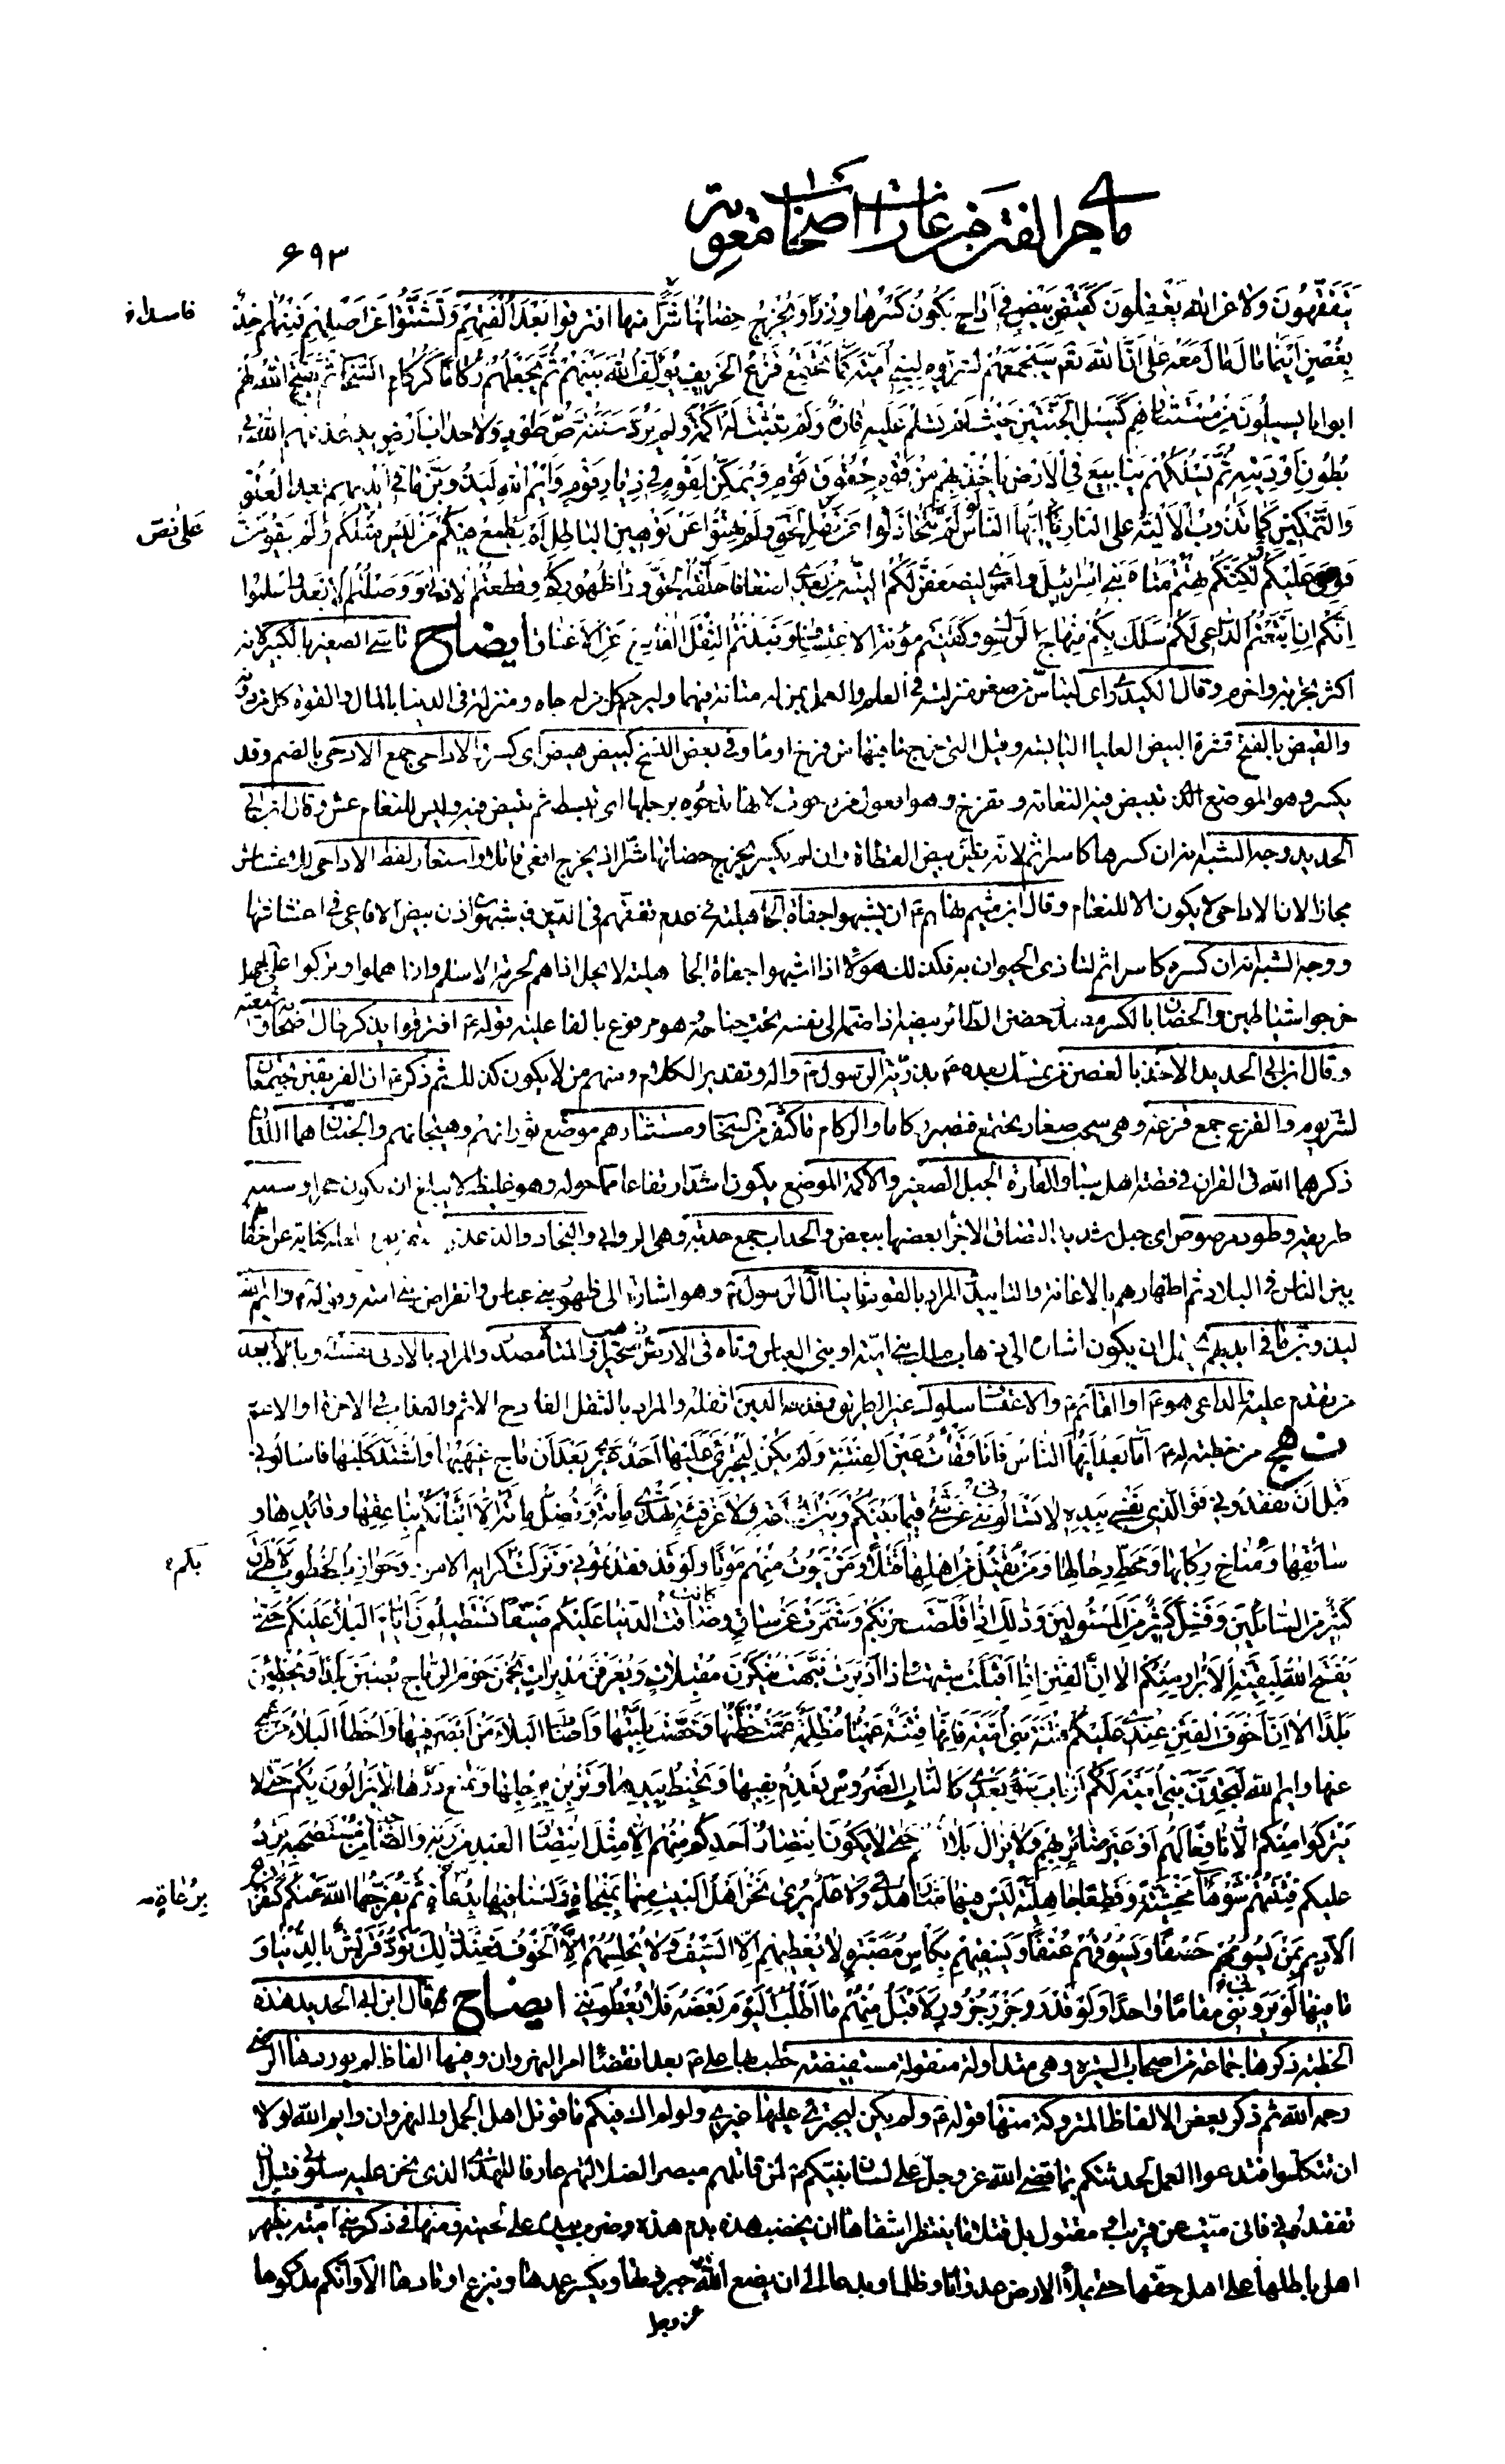 ماجرا الفتن خبر غارات اصحاب معوية
٦٩٣
يَتَفَقَّهُونَ وَلَا عَنِ اللهِ يَعْقِلُونَ كَقَيْضِ بَيْضٍ فِي اَدَاحٍ يَكُونُ كَسْرُهَا وِزْرًا وَيُخْرِجُ حِضَانُهَا شَرًّا منها افترقوا بَعْدَ اُلْفَتِهِمْ وَتَشَتَّتُوا عَنْ اَصْلِهِمْ فَمِنْهُمْ اخِذٌ
بِغُصْنٍ اَيْنَمَا مَالَ مَالَ مَعَهُ عَلَى اَنَّ اللهَ تَعَالَى سَيَجْمَعُهُمْ لِشَرِّ يوم لِبَنِي اُمَيَّةَ كَمَا تَجْتَمِعُ قَزَعُ الْخَرِيفِ يُؤَلِّفُ اللهُ بَيْنَهُمْ ثُمَّ يَجْعَلُهُمْ رُكَامًا كَرُكَامِ السَّحَابِ ثُمَّ يَفْتَحُ اللهُ لَهُمْ
ابوابا يسيلُونَ مِنْ مُسْتَثَارِهِمْ كَسَيْلِ الْجَنَّتَيْنِ حَيْثُ لَمْ تَسْلَمْ عَلَيْهِ قَارَةٌ وَلَمْ تَثْبُتْ لَهُ اَكَمَةٌ وَلَمْ يَرُدَّ سَنَنَهُ رَصُّ طَوْدٍ وَلَا حِدَابُ اَرْضٍ يذعذعهم اللهُ فِي
بُطُونِ اَوْدِيَتِهِ ثُمَّ يَسْلُكُهُمْ يَنَابِيعَ فِي الْاَرْضِ يَاْخُذُ بِهِمْ مِنْ قَوْمٍ حُقُوقَ قَوْمٍ وَيُمَكِّنُ لِقَوْمٍ فِي دِيَارِ قَوْمٍ وَاَيْمُ اللهِ لَيَذُوبَنَّ مَا فِي اَيْدِيهِمْ بَعْدَ الْعُلُوِّ
وَالتَّمْكِينِ كَمَا تَذُوبُ الْاَلْيَةُ عَلَى النَّارِ اَيُّهَا النَّاسُ لَوْ لَمْ تَتَخَاذَلُوا عَنْ نَصْرِ الْحَقِّ وَلَمْ تَهِنُوا عَنْ تَوْهِينِ الْبَاطِلِ لَمْ يَطْمَعْ فِيكُمْ مَنْ لَيْسَ مِثْلَكُمْ وَلَمْ يَقْوَ مَنْ
قوي عَلَيْكُمْ لٰكِنَّكُمْ تِهْتُمْ مَتَاهَ بَنِي اِسْرَائِيلَ وَلَعَمْرِي لَيُضَعَّفَنَّ لَكُمُ التِّيهُ مِنْ بَعْدِي اضعافا خَلَّفْتُمُ الْحَقَّ وَرَاءَ ظُهُورِكُمْ وَقَطَعْتُمُ الْاَدْنَى وَوَصَلْتُمُ الْاَبْعَدَ وَاعْلَمُوا
اَنَّكُمْ اِنِ اتَّبَعْتُمُ الدَّاعِيَ لَكُمْ سَلَكَ بِكُمْ مِنْهَاجَ الرَّسُولِ وَكُفِيتُمْ مَؤُنَةَ الِاعْتِسَافِ وَنَبَذْتُمُ الثِّقْلَ الْفَادِحَ عَنِ الْاَعْنَاقِ ايضاح تاسي الصغير بالكبير لانه
اكثر تجربة واحزم وقال الكيدرى اى ليتاسّ من صغر منزلته فى العلم والعمل بمن له متانة فيهما وليرحم كل من له جاه ومنزلة فى الدنيا بالمال والقوة كل من دونه
والقيض بالفتح قشرة البيض العليا اليابسة وقيل التى خرج ما فيها من فرخ او ماء وفى بعض النسخ كبيض هيض اى كسر والاداحى جمع الادحى بالضم وقد
يكسر وهو الموضع الذى تبيض فيه النعامة وتفرخ وهو افعول من دحوت لانها تدحوه برجلها اى تبسطه ثم تبيض فيه وليس للنعام عش وقال ابن ابى
الحديد وجه الشبه ان كسرها كاسر اثم لانه يظن بيض القطاة وان لم يكسر يخرج حضانها شرا اذ يخرج افعى قاتلا واستعار لفظ الاداحى للاعشاش
مجازا لان الاداحى لا يكون الا للنعام وقال ابن ميثم نهاهم ع ان يشبهوا جفاة الجاهلية فى عدم تفقههم فى الدين فيشبهون اذن بيض الافاعى فى اعشاشها
ووجه الشبه ان كسره كاسر اثم لتاذى الحيوان به فكذلك هؤلاء اذا اشبهوا جفاة الجا هلية لا يحل اذاهم لحرمة الاسلام واذا هملوا وتركوا على الجهل
خرجوا شياطين والحضان بالكسر مصدر حضن الطائر بيضه اذا ضمه الى نفسه تحت جناحه وهو مرفوع بالفاعلية قوله ع افترقوا يذكر حال اصحابه وشيعته
وقال ابن ابى الحديد الاخذ بالغصن من تمسك بعده ع بذرية الرسول ص واله وتقدير الكلام ومنهم من لا يكون كذلك ثم ذكر ع ان الفريقين يجتمعان
لشر يوم والقزع جمع قزعة وهى سحب صغار تجتمع فتصير ركاما والركام ما كثف من السحاب ومستثارهم موضع ثورانهم وهيجانهم والجنتان هما اللتان
ذكرهما الله فى القران فى قصة اهل سبا والقارة الجبل الصغير والاكمة الموضع يكون اشد ارتفاعا مما حوله وهو غليظ لا يبلغ ان يكون حجرا وسننه
طريقه وطود مرصوص اى جبل شديد التصاق الاجزاء بعضها ببعض والحداب جمع حدبة وهى الروابى والنجاد والذعذعة كناية عن اخفائهم
بين الناس فى البلاد ثم اظهارهم بالاعانة والتاييد المراد بالقوم ثانيا ال الرسول ص وهو اشارة الى ظهور بنى عباس وانقراض بنى امية وقوله ع وايم الله
ليذوبن ما فى ايديهم يحتمل ان يكون اشارة الى ذهاب ملك بنى امية او بنى العباس وتاه فى الارض ذهب متحيرا والمتاه مصدر والمراد بالادنى نفسه وبالابعد
من تقدم عليه والداعى هو ع او القائم ع والاعتساف سلوك غير الطريق وفدحه الدين اثقله والمراد بالثقل الفادح الاثم والعذاب فى الاخرة او الاعم
نهج من خطبة له ع اَمَّا بَعْدُ اَيُّهَا النَّاسُ فَاَنَا فَقَاْتُ عَيْنَ الْفِتْنَةِ وَلَمْ يَكُنْ لِيَجْتَرِئَ عَلَيْهَا اَحَدٌ غَيْرِي بَعْدَ اَنْ مَاجَ غَيْهَبُهَا وَاشْتَدَّ كَلَبُهَا فَاسْاَلُونِي
قَبْلَ اَنْ تَفْقِدُونِي فَوَ الَّذِي نَفْسِي بِيَدِهِ لَا تَسْاَلُونِّي عَنْ شَيْءٍ فِيمَا بَيْنَكُمْ وَبَيْنَ السَّاعَةِ وَلَا عَنْ فِئَةٍ تَهْدِي مِائَةً وَتُضِلُّ مِائَةً اِلَّا اَنْبَاْتُكُمْ بِنَاعِقِهَا وَقَائِدِهَا وَ
سَائِقِهَا وَمُنَاخِ رِكَابِهَا وَمَحَطِّ رِحَالِهَا وَمَنْ يُقْتَلُ مِنْ اَهْلِهَا قَتْلًا وَمَنْ يَمُوتُ مِنْهُمْ مَوْتًا وَلَوْ قَدْ فَقَدْتُمُونِي وَنَزَلَتْ كَرَائِهُ الْاُمُورِ وَحَوَازِبُ الْخُطُوبِ لَاَطْرَقَ
كَثِيرٌ مِنَ السَّائِلِينَ وَفَشِلَ كَثِيرٌ مِنَ الْمَسْئُولِينَ وَذٰلِكَ اِذَا قَلَّصَتْ حَرْبُكُمْ وَشَمَّرَتْ عَنْ سَاقٍ وَضَاقَتِ الدُّنْيَا عَلَيْكُمْ ضِيقًا تَسْتَطِيلُونَ اَيَّامَ الْبَلَاءِ عَلَيْكُمْ حَتَّى
يَفْتَحَ اللهُ لِبَقِيَّةِ الْاَبْرَارِ مِنْكُمْ اَلَا اِنَّ الْفِتَنَ اِذَا اَقْبَلَتْ شَبَّهَتْ وَاِذَا اَدْبَرَتْ نَبَّهَتْ يُنْكَرْنَ مُقْبِلَاتٍ وَيُعْرَفْنَ مُدْبِرَاتٍ يَحُمْنَ حَوْمَ الرِّيَاحِ يُصِبْنَ بَلَدًا وَيُخْطِئْنَ
بَلَدًا اَلَا اِنَّ اَخْوَفَ الْفِتَنِ عِنْدِي عَلَيْكُمْ فِتْنَةُ بَنِي اُمَيَّةَ فَاِنَّهَا فِتْنَةٌ عَمْيَاءُ مُظْلِمَةٌ عَمَّتْ خُطَّتُهَا وَخَصَّتْ بَلِيَّتُهَا وَاَصَابَ الْبَلَاءُ مَنْ اَبْصَرَ فِيهَا وَاَخْطَاَ الْبَلَاءُ مَنْ عَمِيَ
عنها وايم الله لَتَجِدُنَّ بَنِي اُمَيَّةَ لَكُمْ اَرْبَابَ سَوْءٍ بَعْدِي كَالنَّابِ الضَّرُوسِ تَعْذِمُ بِفِيهَا وَتَخْبِطُ بِيَدِهَا وَتَزْبِنُ بِرِجْلِهَا وَتَمْنَعُ دَرَّهَا لَا يَزَالُونَ بِكُمْ حَتَّى لَا
يَتْرُكُوا مِنْكُمْ اِلَّا نَافِعًا لَهُمْ اَوْ غَيْرَ ضَائِرٍ بِهِمْ وَلَا يَزَالُ بَلَاؤُهُمْ حَتَّى لَا يَكُونَ انْتِصَارُ اَحَدِكُمْ مِنْهُمْ اِلَّا مِثْلَ انْتِصَارِ الْعَبْدِ مِنْ رَبِّهِ وَالصَّاحِبِ مِنْ مُسْتَصْحِبِهِ تَرِدُ
عليكم فِتْنَتُهُمْ شَوْهَاءَ مَخْشِيَّةً وَقِطَعًا جَاهِلِيَّةً لَيْسَ فِيهَا مَنَارُ هُدًى وَلَا عَلَمٌ يُرَى نَحْنُ اَهْلَ الْبَيْتِ مِنْهَا بِمَنْجَاةٍ وَلَسْنَا فِيهَا بِدُعَاةٍ ثُمَّ يُفَرِّجُهَا اللهُ عَنْكُمْ كَتَفْرِيجِ
الْاَدِيمِ بِمَنْ يَسُومُهُمْ خَسْفًا وَيَسُوقُهُمْ عُنْفًا وَيَسْقِيهِمْ بِكَاْسٍ مُصَبَّرَةٍ لَا يُعْطِيهِمْ اِلَّا السَّيْفَ وَلَا يُحْلِسُهُمْ اِلَّا الْخَوْفَ فَعِنْدَ ذٰلِكَ تَوَدُّ قُرَيْشٌ بِالدُّنْيَا وَ
مَا فِيهَا لَوْ يَرَوْنَنِي مَقَامًا وَاحِدًا وَلَوْ قَدْرَ جَزْرِ جَزُورٍ لِاَقْبَلَ مِنْهُمْ مَا اَطْلُبُ الْيَوْمَ بَعْضَهُ فَلَا يُعْطُونَنِي ايضاح قال ابن ابى الحديد هذه
الخطبة ذكرها جماعة من اصحاب السيرة وهى متداولة منقولة مستفيضة خطب بها على ع بعد انقضاء امر النهروان وفيها الفاظ لم يوردها الرضى
رحمه الله ثم ذكر بعض الالفاظ المتروكة منها قوله ع ولم يكن ليجترئ عليها غيرى ولو لم اك فيكم ما قوتل اهل الجمل والنهروان وايم الله لولا
ان تتكلوا فتدعوا العمل لحدثتكم بما قضى الله عز وجل على لسان نبيكم ص لمن قاتلهم مبصرا لضلالتهم عارفا للهدى الذى نحن عليه سلونى قبل ان
تفقدونى فانى ميت عن قريب او مقتول بل قتلا ما ينتظر اشقاها ان يخضب هذه بدم هذه وضرب بيده على لحيته ومنها فى ذكر بنى امية يظهر
اهل باطلها على اهل حقها حتى يملا الارض عدوانا وظلما وبدعا الى ان يضع الله جبروتها ويكسر عمدها وينزع اوتادها الا وانكم مدركوها
فاسدا
على نصّ
بكم
برُعَاةٍ